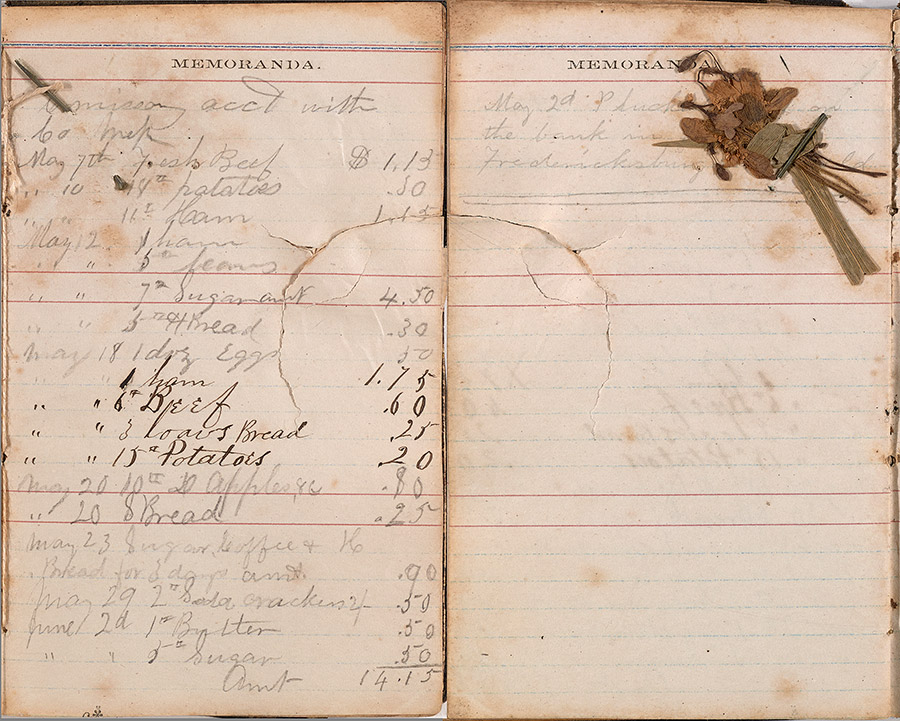 MEMORANDA.
Comissary acct with
Co
May 7th Fresh Beef $ 1.13
" 10 potatoes .50
" " 11 lb Ham 1.15
May 12 1 ham
" " 5 lb
" " 7 lb Sugar amt 4.50
" " 5 lb H Bread .30
May 18 1 doz Eggs 50
" 1 ham 1.75
" " 6 lb Beef .60
" " 3 loavs Bread .25
" " 15 lb Potatoes .20
May 20 10 lb D Apples &c .80
" 20 8 Bread .25
May 23 Sugar, Coffee & H
Bread for 3 days amt. .90
May 29 2 lb Soda crackers .50
June 2d 1 lb Butter .50
" " 5 lb Sugar .50
Amt 14.15
MEMORANDA
May 2d on
the bank in